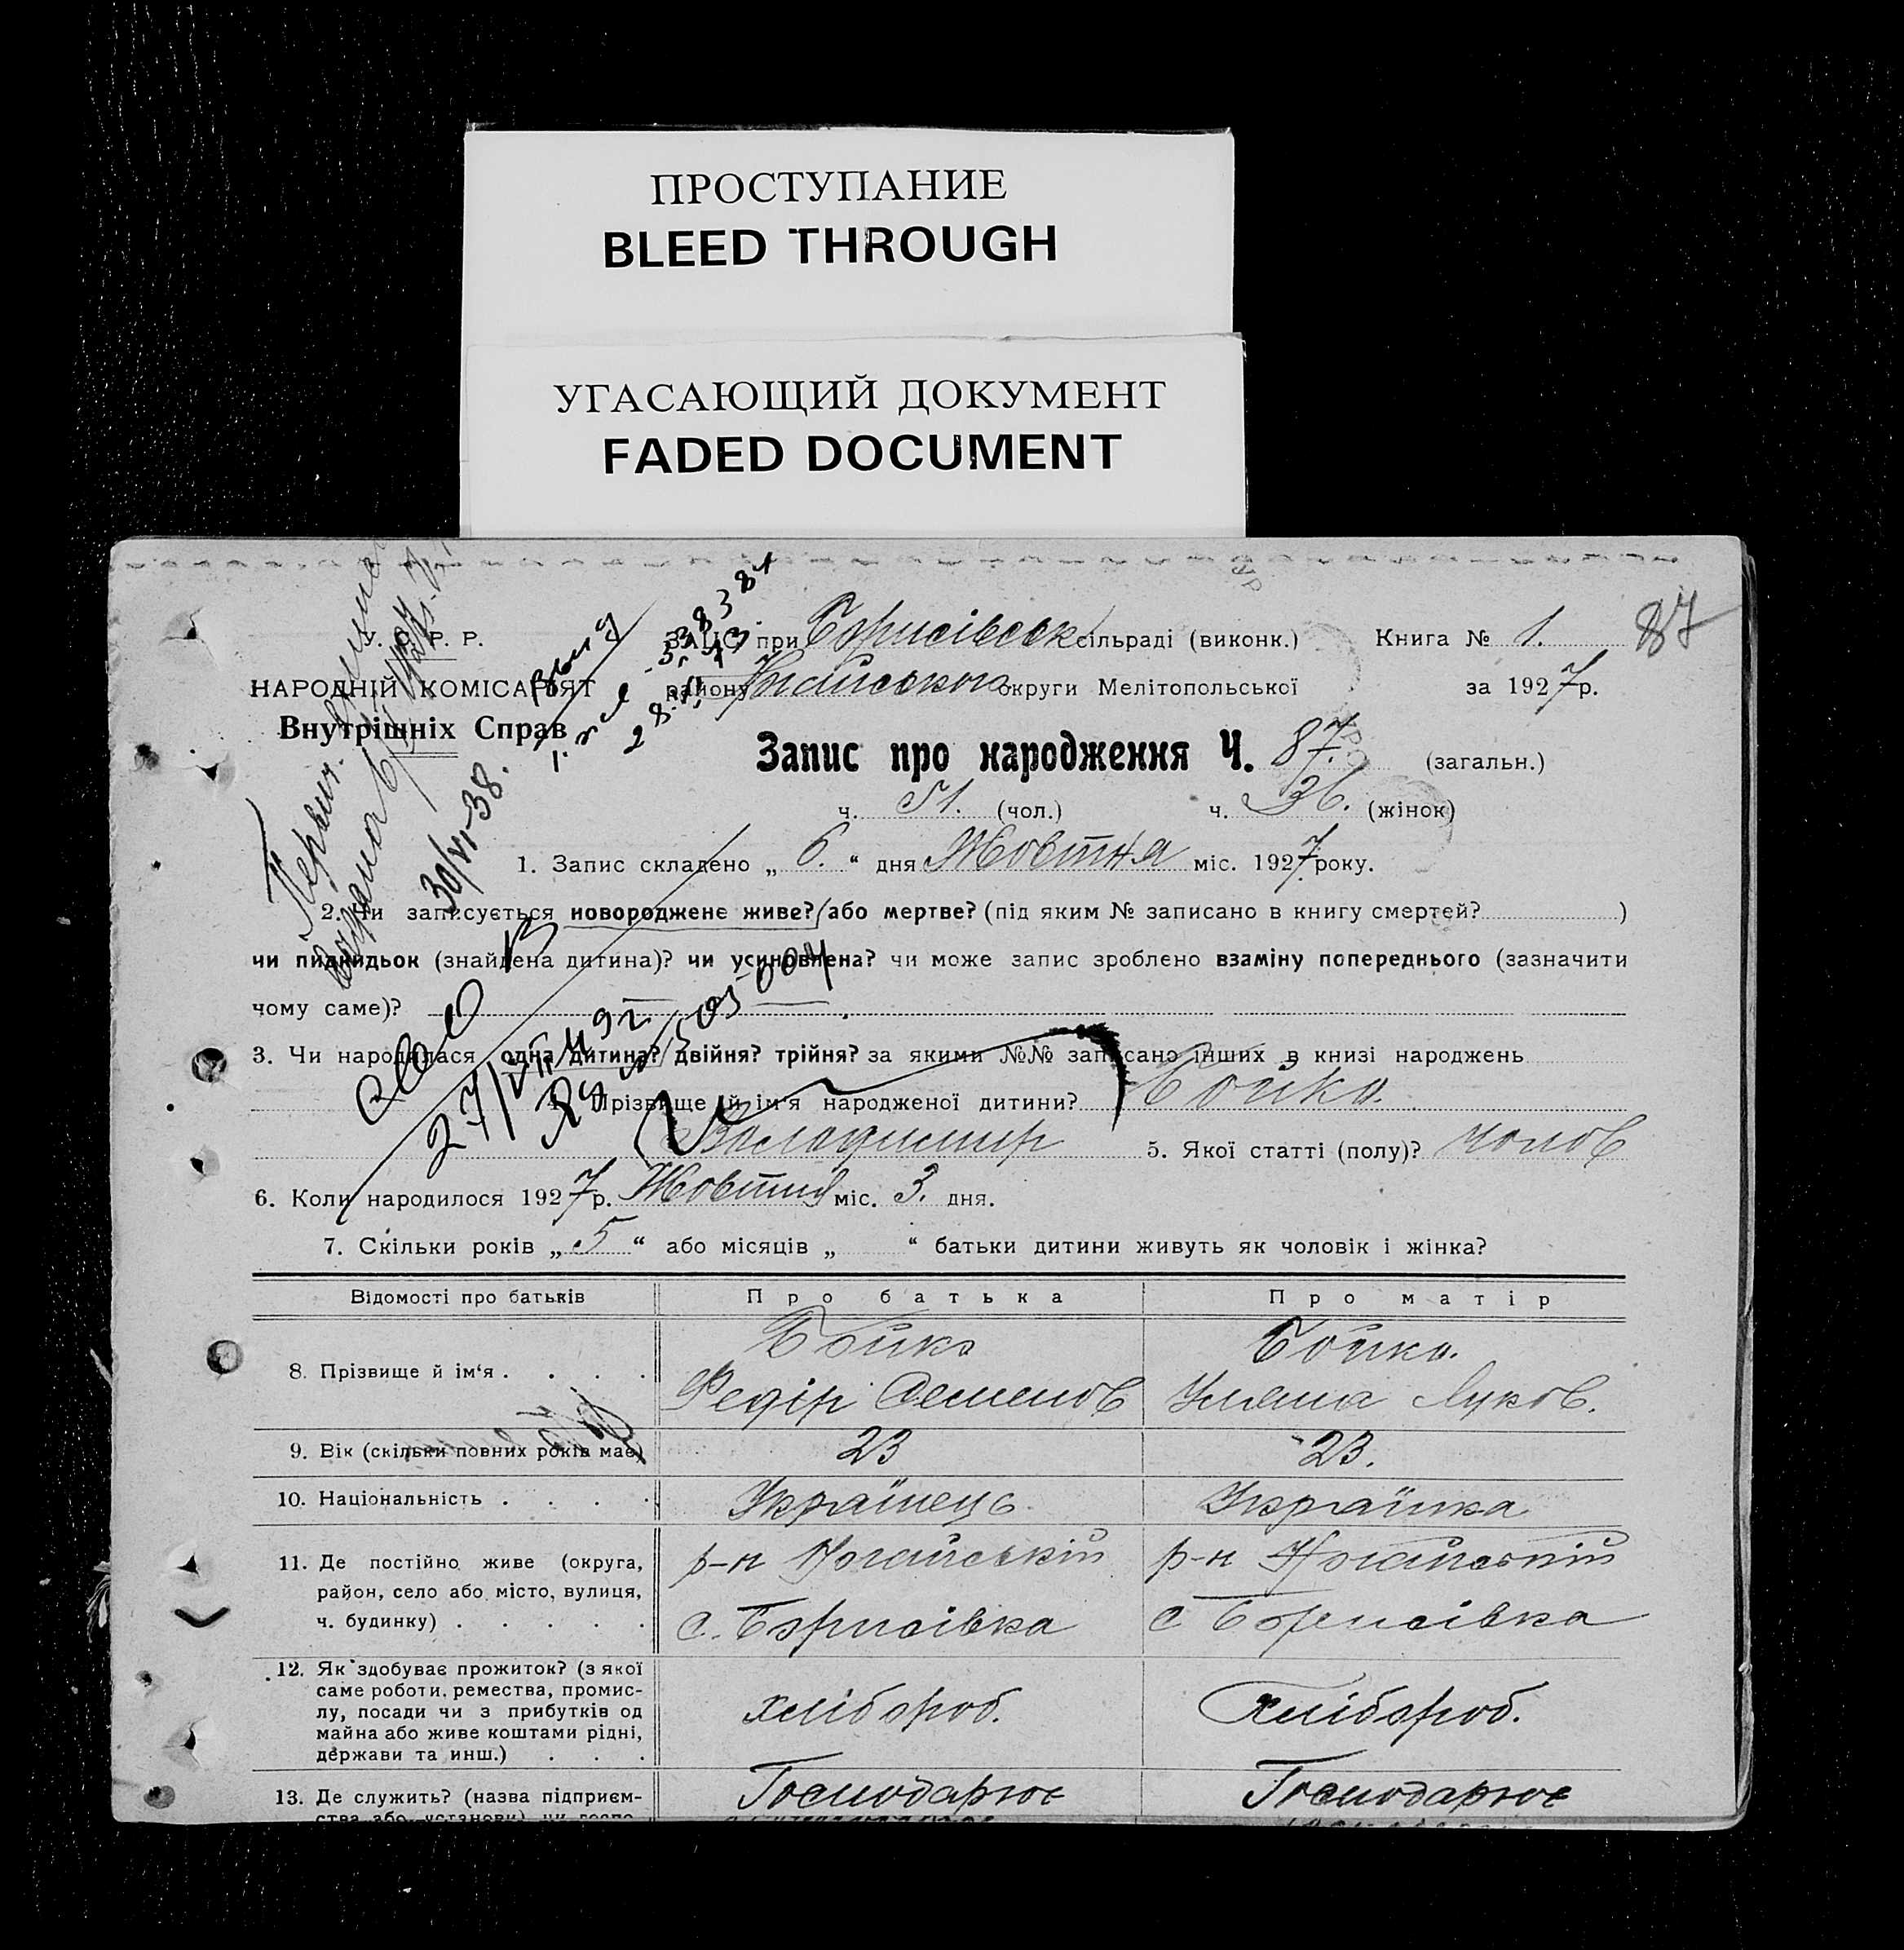 ПРОСТУПАНИЕ
BLEED THROUGH
УГАСАЮЩИЙ ДОКУМЕНТ
FADED DOCUMENT
У. С. Р. Р.
НАРОДНІЙ КОМІСАРІЯТ
Внутрішніх Справ
ЗАЦС при Борисівськ сільраді (виконк.) Книга № 1. 87
району Ногайського округи Мелітопольської за 1927 р.
Запис про народження Ч. 87. (загальн.)
ч. 51. (чол.) ч. 36. (жінок)
30/VI-38.
1. Запис складено „ 6. “ дня Жовтня міс. 1927 року.
2. Чи записується новороджене живе? або мертве? (під яким № записано в книгу смертей? )
чи пидкидьок (знайдена дитина)? чи усиновлена? чи може запис зроблено взаміну попереднього (зазначити
чому саме)?
3. Чи народилася одна дитина? двійня? трійня? за якими №№ записано інших в книзі народжень
4. Прізвище й ім'я народженої дитини? Бойко.
Володимир 5. Якої статті (полу)? чолов
6. Коли народилося 1927 р. Жовтня міс. 3. дня.
7. Скільки років „ 5 “ або місяців „ “ батьки дитини живуть як чоловік і жінка?
Відомості про батьків Про батька Про матір
8. Прізвище й ім‘я . . . . Бойко Бойко.
Федір Семенов Уляна Луков.
9. Вік (скільки повних років має) 23 23.
10. Національність . . . . Українець Українка
11. Де постійно живе (округа, р-н Ногайській р-н Ногайській
район, село або місто, вулиця,
ч. будинку) . . . . . с. Борисівка с Борисівка
12. Як здобуває прожиток? (з якої
саме роботи, ремества, промис-
лу, посади чи з прибутків од хлібороб. хлібороб.
майна або живе коштами рідні,
держави та инш.) . . .
13. Де служить? (назва підприєм- Господарює Господарює
ства або установи) чи госпо-